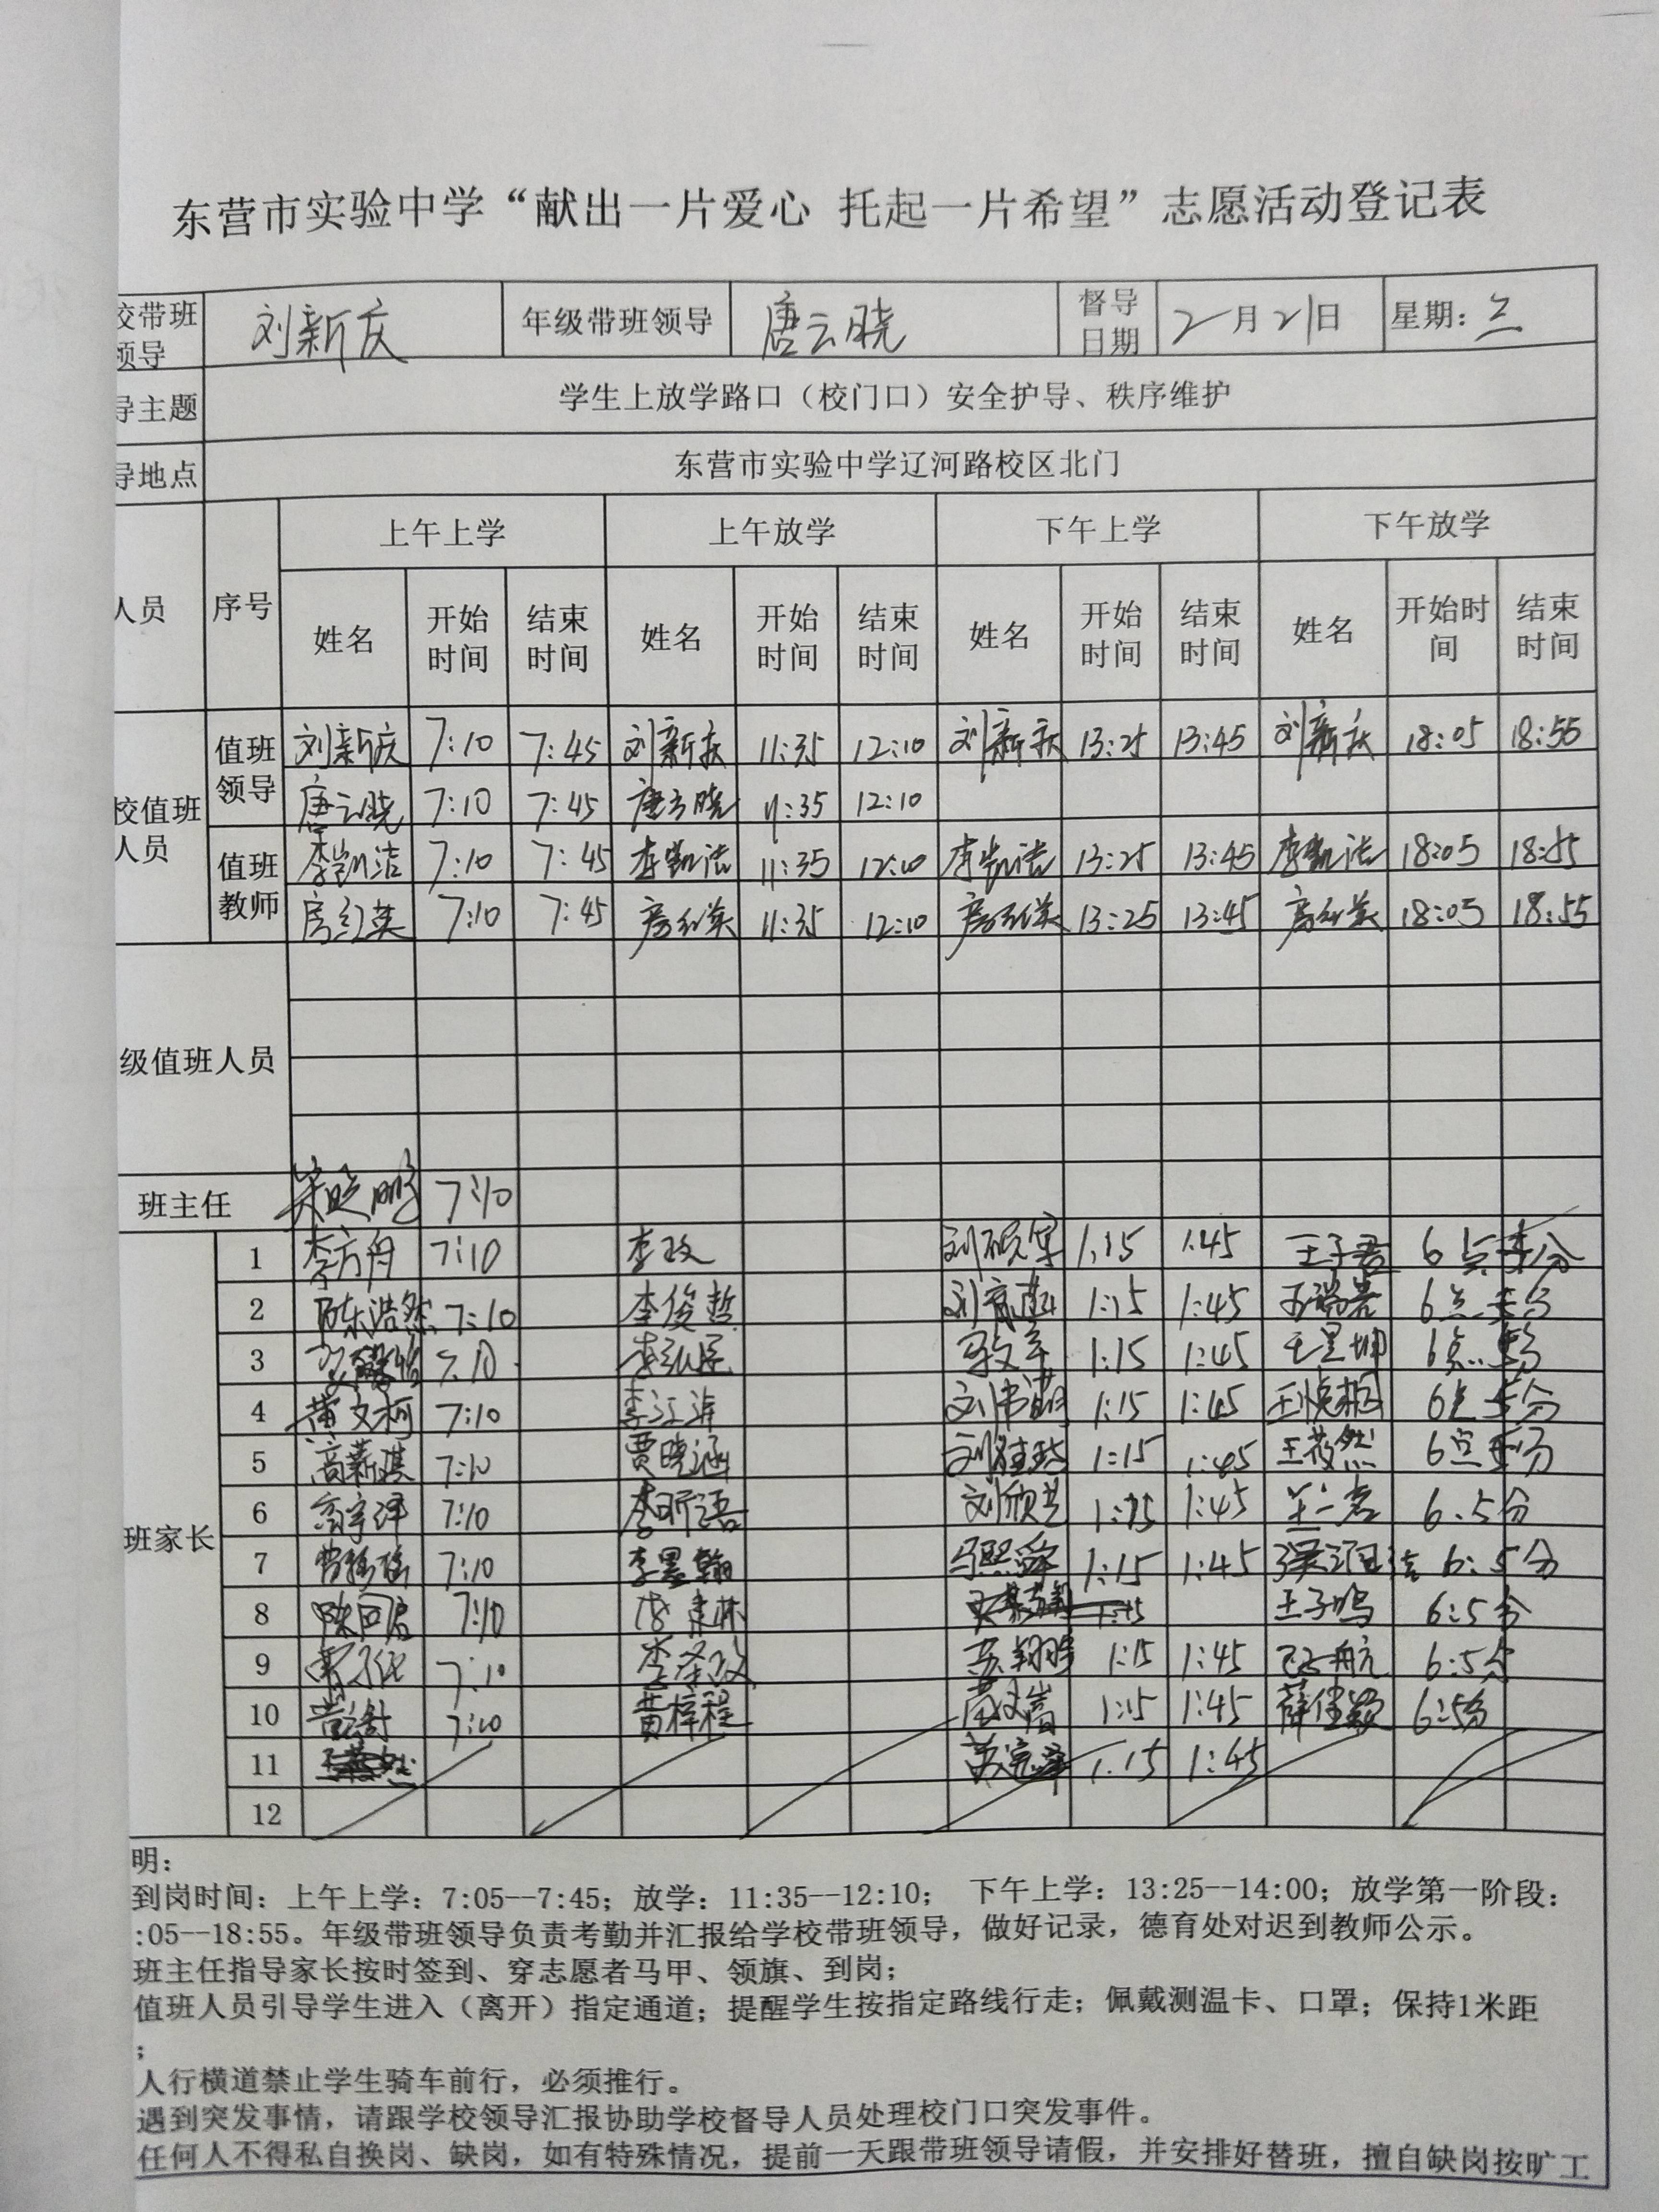 东营市实验中学“献出一片爱心 托起一片希望”志愿活动登记表
校带班领导 刘新庆 年级带班领导 唐云晓 督导日期 2月21日 星期：三
导主题 学生上放学路口（校门口）安全护导、秩序维护
导地点 东营市实验中学辽河路校区北门
人员 序号 上午上学 上午放学 下午上学 下午放学
姓名 开始时间 结束时间 姓名 开始时间 结束时间 姓名 开始时间 结束时间 姓名 开始时间 结束时间
校值班人员 值班领导 刘新庆 7:10 7:45 刘新庆 11:35 12:10 刘新庆 13:25 13:45 刘新庆 18:05 18:55
唐云晓 7:10 7:45 唐云晓 11:35 12:10
值班教师 李凯洁 7:10 7:45 李凯洁 11:35 12:10 李凯洁 13:25 13:45 李凯洁 18:05 18:55
房红英 7:10 7:45 房红英 11:35 12:10 房红英 13:25 13:45 房红英 18:05 18:55
级值班人员
班主任 7:10
班家长
1 李方舟 7:10 李政 刘砚军 1:15 1:45 王子君 6点5分
2 陈浩然 7:10 李俊哲 1:15 1:45 王瑞尧 6点5分
3 7:10 1:15 1:45 王星坤 6点5分
4 黄文柯 7:10 1:15 1:45 6点5分
5 高薪淇 7:10 贾晓涵 1:15 1:45 王筱然 6点5分
6 高宇泽 7:10 李昕语 刘欣 1:15 1:45 6:5分
7 7:10 李墨翰 马熙舜 1:15 1:45 6:5分
8 7:10 1:15 王子鸣 6:5分
9 7:10 1:15 1:45 6:5分
10 7:10 黄梓程 1:15 1:45 薛佳颖 6:5分
11 1:15 1:45
12
明：
到岗时间：上午上学：7:05--7:45；放学：11:35--12:10； 下午上学：13:25--14:00；放学第一阶段：
:05--18:55。年级带班领导负责考勤并汇报给学校带班领导，做好记录，德育处对迟到教师公示。
班主任指导家长按时签到、穿志愿者马甲、领旗、到岗；
值班人员引导学生进入（离开）指定通道；提醒学生按指定路线行走；佩戴测温卡、口罩；保持1米距
；
人行横道禁止学生骑车前行，必须推行。
遇到突发事情，请跟学校领导汇报协助学校督导人员处理校门口突发事件。
任何人不得私自换岗、缺岗，如有特殊情况，提前一天跟带班领导请假，并安排好替班，擅自缺岗按旷工